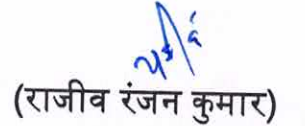 (राजीव रंजन कुमार)